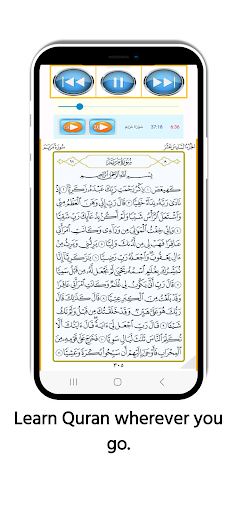 سورة مريم 37:18 6:36
سُورَةُ مَرْيَمَ الجُزءُ السَّادِسَ عَشَرَ
سُورَةُ مَرْيَمَ
بِسْمِ اللَّهِ الرَّحْمَٰنِ الرَّحِيمِ
كٓهيعٓصٓ ١ ذِكْرُ رَحْمَتِ رَبِّكَ عَبْدَهُۥ زَكَرِيَّآ ٢ إِذْ
نَادَىٰ رَبَّهُۥ نِدَآءً خَفِيًّا ٣ قَالَ رَبِّ إِنِّي وَهَنَ ٱلْعَظْمُ مِنِّي
وَٱشْتَعَلَ ٱلرَّأْسُ شَيْبًا وَلَمْ أَكُنۢ بِدُعَآئِكَ رَبِّ شَقِيًّا ٤
وَإِنِّي خِفْتُ ٱلْمَوَٰلِيَ مِن وَرَآءِي وَكَانَتِ ٱمْرَأَتِي
عَاقِرًا فَهَبْ لِي مِن لَّدُنكَ وَلِيًّا ٥ يَرِثُنِي وَيَرِثُ
مِنْ ءَالِ يَعْقُوبَ وَٱجْعَلْهُ رَبِّ رَضِيًّا ٦ يَٰزَكَرِيَّآ إِنَّا
نُبَشِّرُكَ بِغُلَٰمٍ ٱسْمُهُۥ يَحْيَىٰ لَمْ نَجْعَل لَّهُۥ مِن قَبْلُ سَمِيًّا ٧
قَالَ رَبِّ أَنَّىٰ يَكُونُ لِي غُلَٰمٌ وَكَانَتِ ٱمْرَأَتِي عَاقِرًا
وَقَدْ بَلَغْتُ مِنَ ٱلْكِبَرِ عِتِيًّا ٨ قَالَ كَذَٰلِكَ قَالَ رَبُّكَ
هُوَ عَلَيَّ هَيِّنٌ وَقَدْ خَلَقْتُكَ مِن قَبْلُ وَلَمْ تَكُ شَيْئًا ٩
قَالَ رَبِّ ٱجْعَل لِّي ءَايَةً قَالَ ءَايَتُكَ أَلَّا تُكَلِّمَ
ٱلنَّاسَ ثَلَٰثَ لَيَالٍ سَوِيًّا ١٠ فَخَرَجَ عَلَىٰ قَوْمِهِۦ مِنَ
ٱلْمِحْرَابِ فَأَوْحَىٰٓ إِلَيْهِمْ أَن سَبِّحُوا۟ بُكْرَةً وَعَشِيًّا ١١
٣٠٥
Learn Quran wherever you
go.